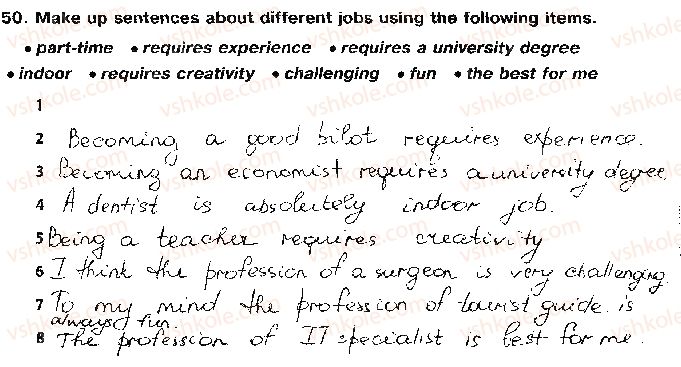 50. Make up sentences about different jobs using the following items.
• part-time • requires experience • requires a university degree
• indoor • requires creativity • challenging • fun • the best for me
1
2 Becoming a good bilot requires experience.
3 Becoming an economist requires a university degree.
4 A dentist is absolutely indoor job.
5 Being a teacher requires creativity
6 I think the profession of a surgeon is very challenging.
7 To my mind the profession of tourist guide is
always fun.
8 The profession of IT specialist is best for me.